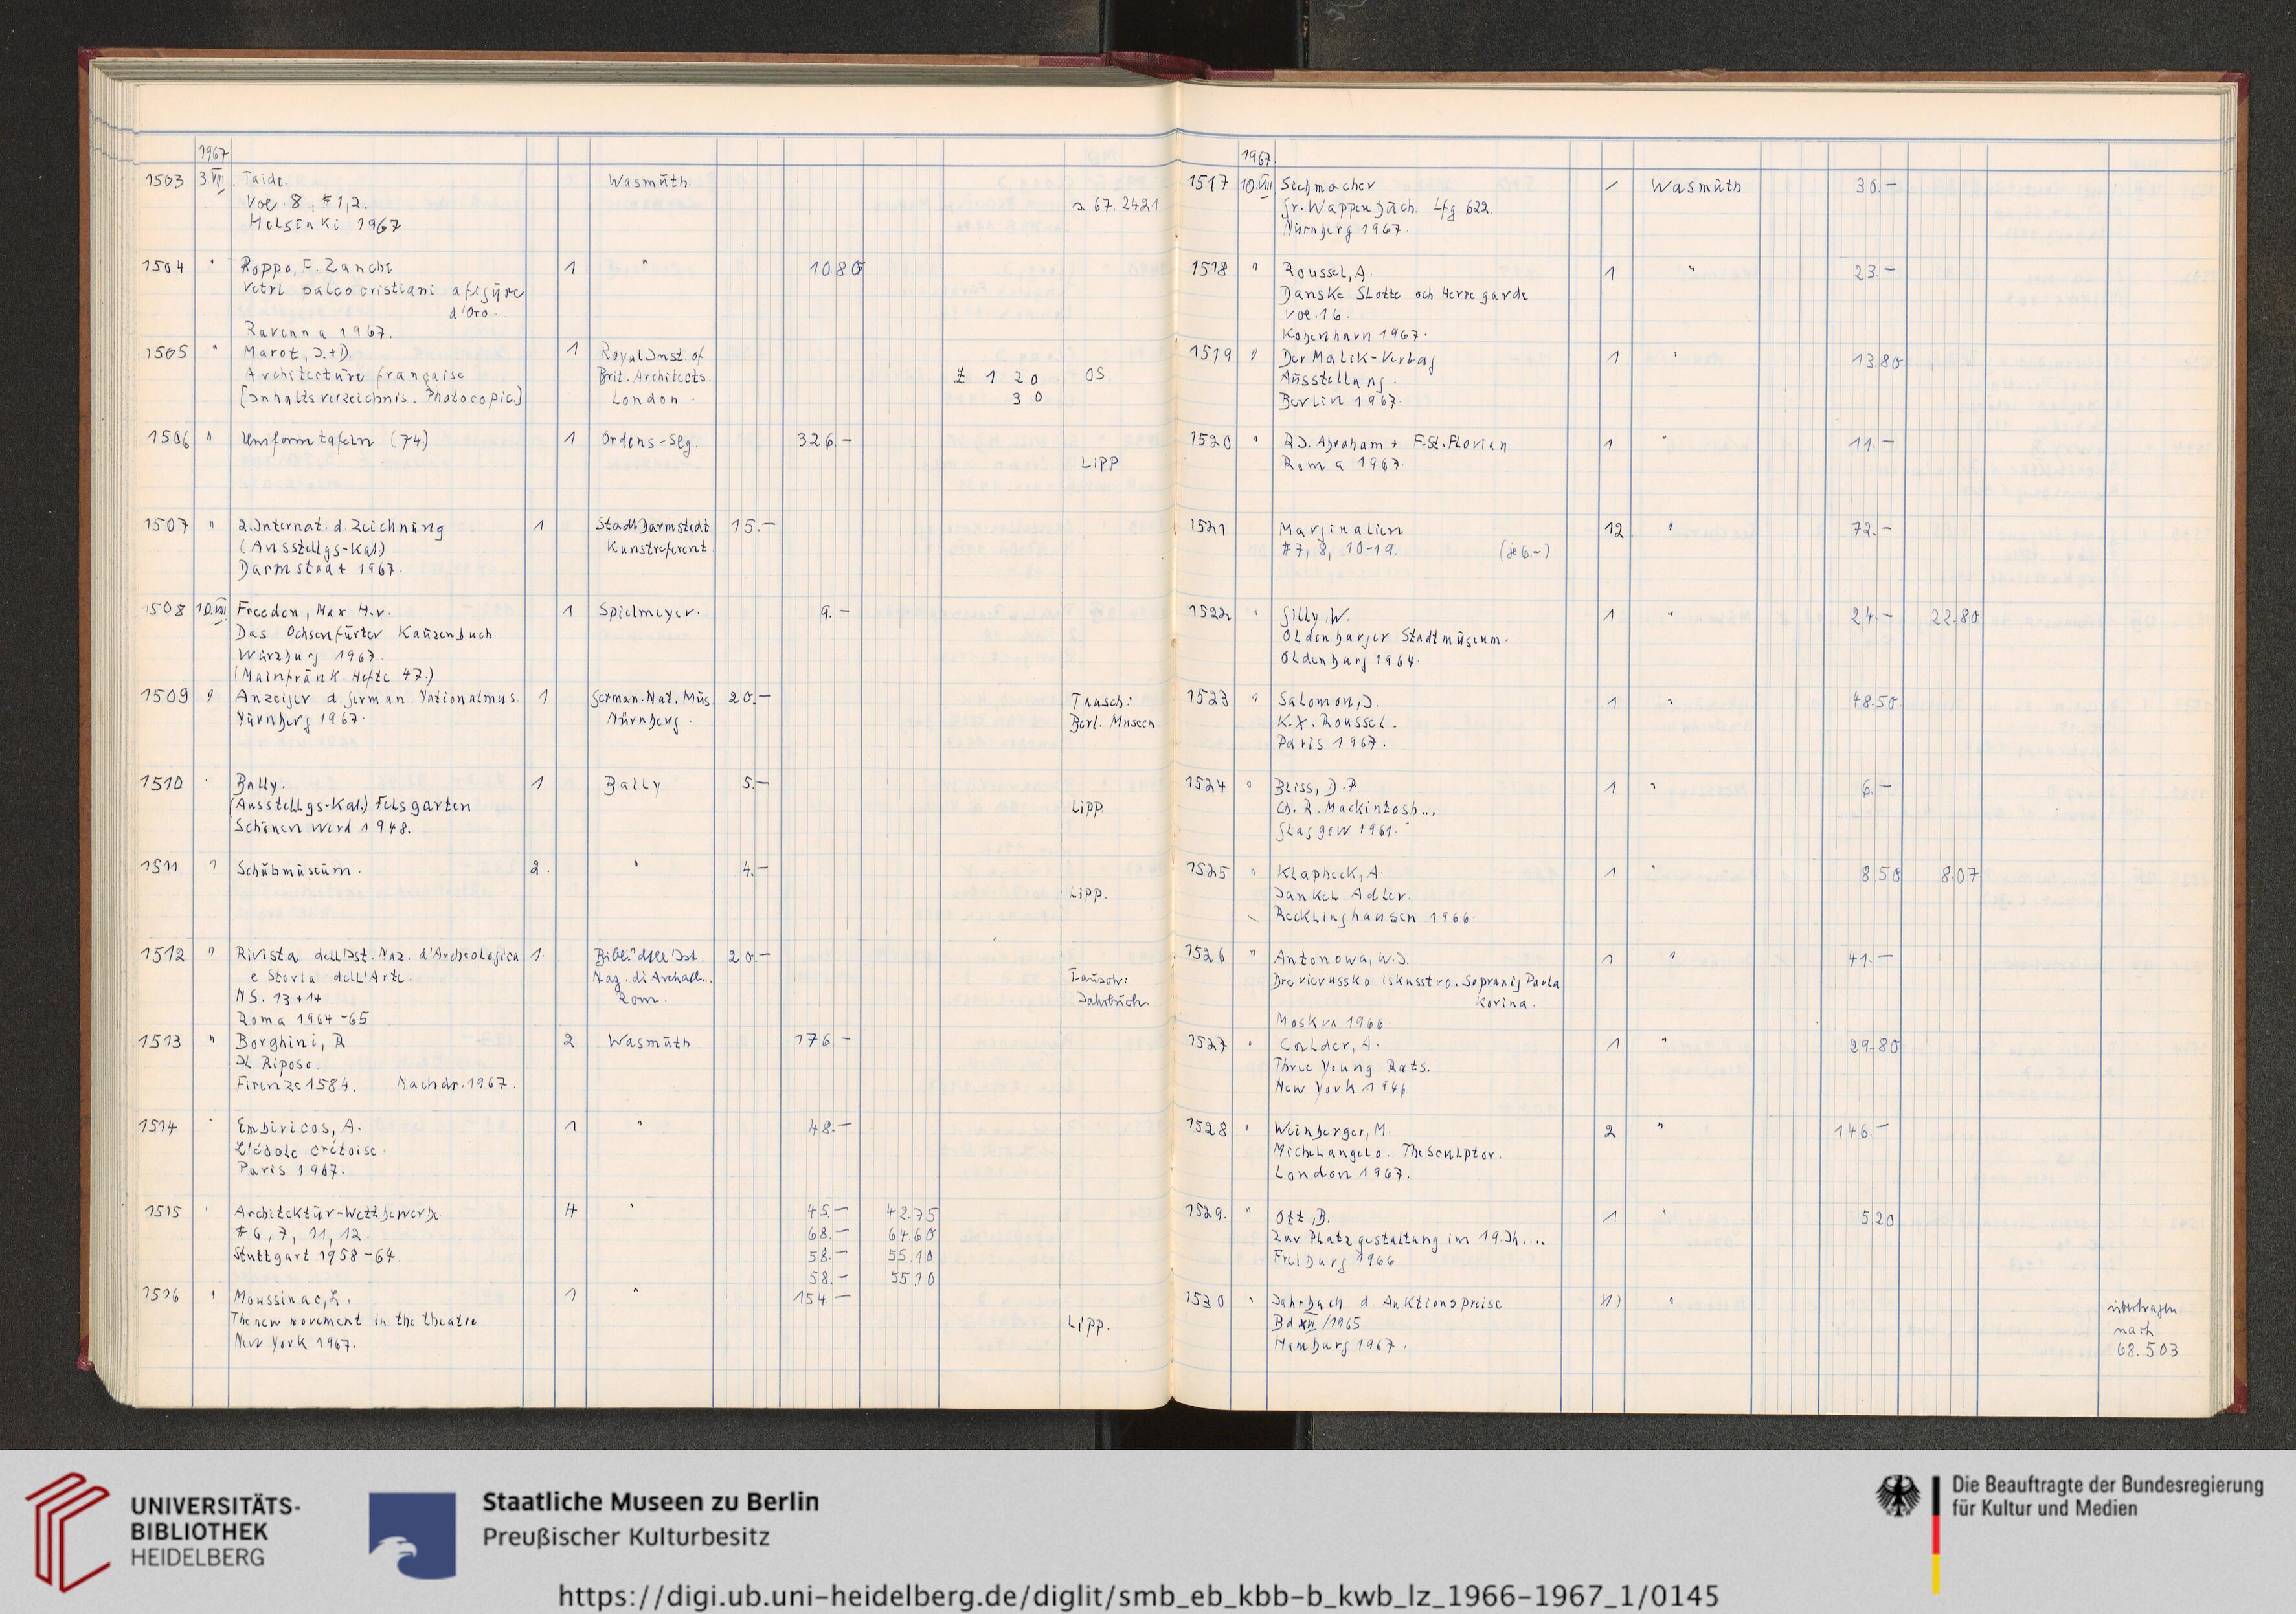 1967
1503 3.VIII. Taide. Wasmuth
Vol. 8, #1,2. s. 67.2421
Helsinki 1967
1504 " Roppo, F. Zanchi 1 " 10.80
Vetri paleocristiani a figure
d'Oro.
Ravenna 1967.
1505 " Marot, J.+D. 1 Royal Inst. of
Architecture française Brit. Architects. £ 1 20 OS.
[Inhaltsverzeichnis. Photocopie.] London. 30
1506 " Uniformtafeln (74.) 1 Ordens-Slg. 326.-
Lipp
1507 " 2. Internat. d. Zeichnung 1 Stadt Darmstadt 15.-
(Ausstellgs-Kat.) Kunstreferent
Darmstadt 1967.
1508 10.VIII. Freeden, Max H.v. 1 Spielmeyer. 9.-
Das Ochsenfurter Kauzenbuch.
Würzburg 1967.
(Mainfränk. Hefte 47.)
1509 " Anzeiger d. German. Nationalmus. 1 German. Nat. Mus. 20.- Tausch:
Nürnberg 1967. Nürnberg. Berl. Museen
1510 " Bally. 1 Bally 5.-
(Ausstellgs-Kat.) Felsgarten Lipp.
Schönenwerd 1948.
1511 " Schuhmuseum. 2. " 4.-
Lipp.
1512 " Rivista dell'Ist. Naz. d'Archeologica 1. Bibl. dell'Ist. 20.-
e Storia dell'Arte. Naz. di Archaeol... Tausch:
NS. 13+14 Rom. Jahrbuch.
Roma 1964-65
1513 " Borghini, R 2 Wasmuth 176.-
Il Riposo.
Firenze 1584. Nachdr. 1967.
1514 " Embiricos, A. 1 " 48.-
L'école crétoise.
Paris 1967.
1515 " Architektur-Wettbewerbe 4 " 45.- 42.75
#6, 7, 11, 12. 68.- 64.60
Stuttgart 1958-64. 58.- 55.10
58.- 55.10
1516 " Moussinac, L. 1 " 154.-
The new movement in the theatre Lipp.
New York 1967.
1967
1517 10.VIII Siebmacher 1 Wasmuth 30.-
Gr. Wappenbuch. Lfg 622.
Nürnberg 1967.
1518 " Roussel, A. 1 " 23.-
Danske Slotte och Herregarde
Vol. 16.
Kobenhavn 1967.
1519 " Der Malik-Verlag 1 " 13.80
Ausstellung.
Berlin 1967.
1520 " R.J. Abraham + F.St. Florian 1 " 11.-
Roma 1967.
1521 Marginalien 12. " 72.-
#7, 8, 10-19. (je 6.-)
1522 " Gilly, W. 1 " 24.- 22.80
Oldenburger Stadtmuseum.
Oldenburg 1964.
1523 " Salomon, J. 1 " 48.50
K.X. Roussel.
Paris 1967.
1524 " Bliss, D.P 1 " 6.-
Ch. R. Mackintosh...
Glasgow 1961.
1525 " Klapheck, A. 1 " 8.50 8.07
Jankel Adler.
Recklinghausen 1966.
1526 " Antonowa, W.J. 1 " 41.-
Drevierussko iskusstvo. Sopranij Pavla
Korina.
Moskva 1966.
1527 " Calder, A. 1 " 29.80
Three Young Rats.
New York 1946
1528 " Weinberger, M. 2 " 146.-
Michelangelo. The Sculptor.
London 1967.
1529. " Ott, B. 1 " 5.20
Zur Platzgestaltung im 19. Jh....
Freiburg 1966
1530 " Jahrbuch d. Auktionspreise (1) " übertragen
Bd XVI/1965 nach
Hamburg 1967. 68.503
UNIVERSITÄTS-
BIBLIOTHEK
HEIDELBERG
Staatliche Museen zu Berlin
Preußischer Kulturbesitz
Die Beauftragte der Bundesregierung
für Kultur und Medien
https://digi.ub.uni-heidelberg.de/diglit/smb_eb_kbb-b_kwb_lz_1966-1967_1/0145